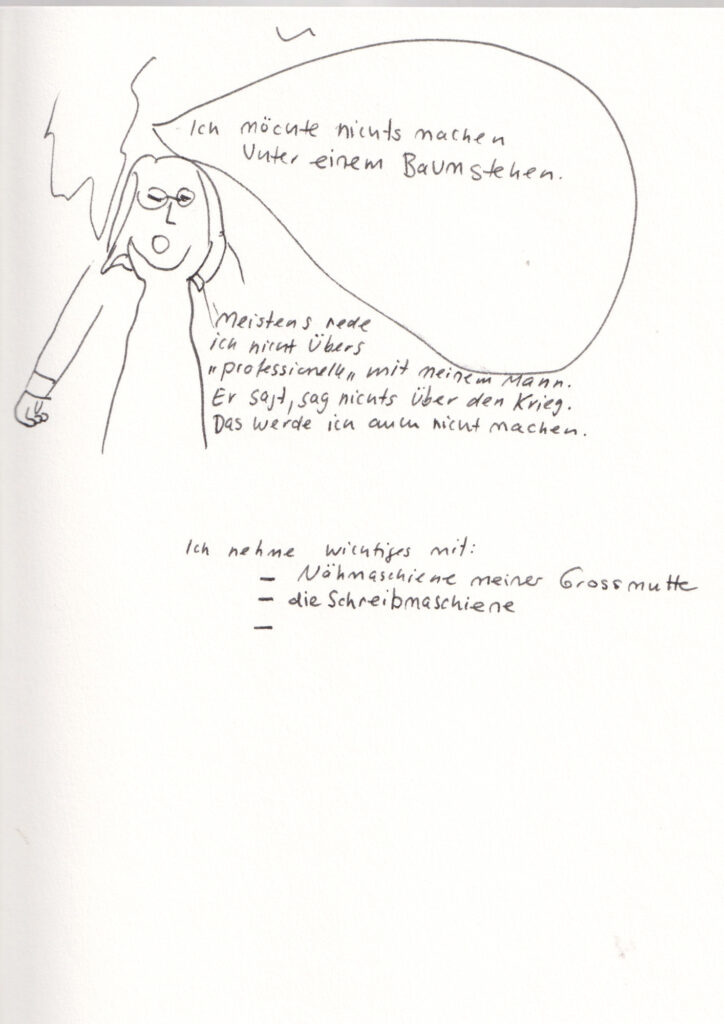 Ich möchte nichts machen
Unter einem Baum stehen.
Meistens rede
ich nicht Übers
"professionelle" mit meinem Mann.
Er sagt, sag nichts über den Krieg.
Das werde ich auch nicht machen.
Ich nehme wichtiges mit:
– Nähmaschiene meiner Grossmutte
– die Schreibmaschiene
–